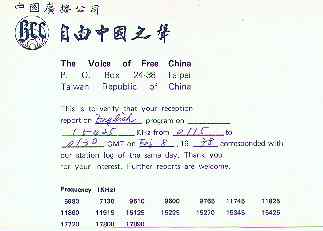 中國廣播公司
BCC 自由中國之聲
The Voice of Free China
P. O. Box 24-38 Taipei
Taiwan Republic of China
This is to verify that your reception
report on English program on
15425 KHz from 0115 to
0130 GMT on Feb 8, 19 78 corresponded with
our station log of the same day. Thank you
for your interest. Further reports are welcome.
Frequency (KHz)
7130 9510 9600 9765 11745 11825
11860 11915 15125 15225 15270 15345 15425
17720 17800 17890